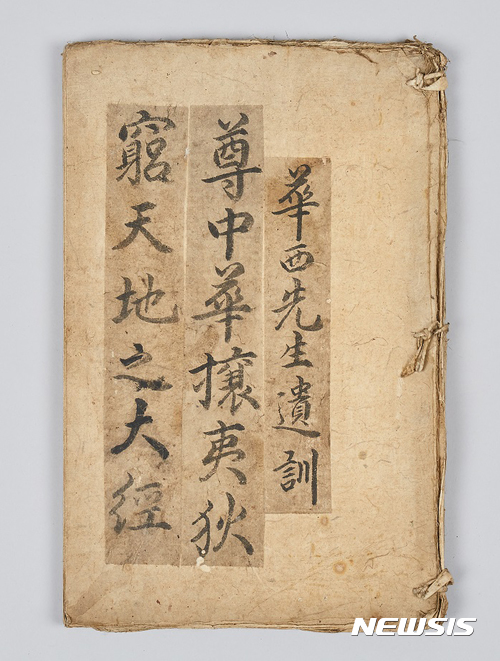 華西先生遺訓
尊中華攘夷狄
窮天地之大經
NEWSIS